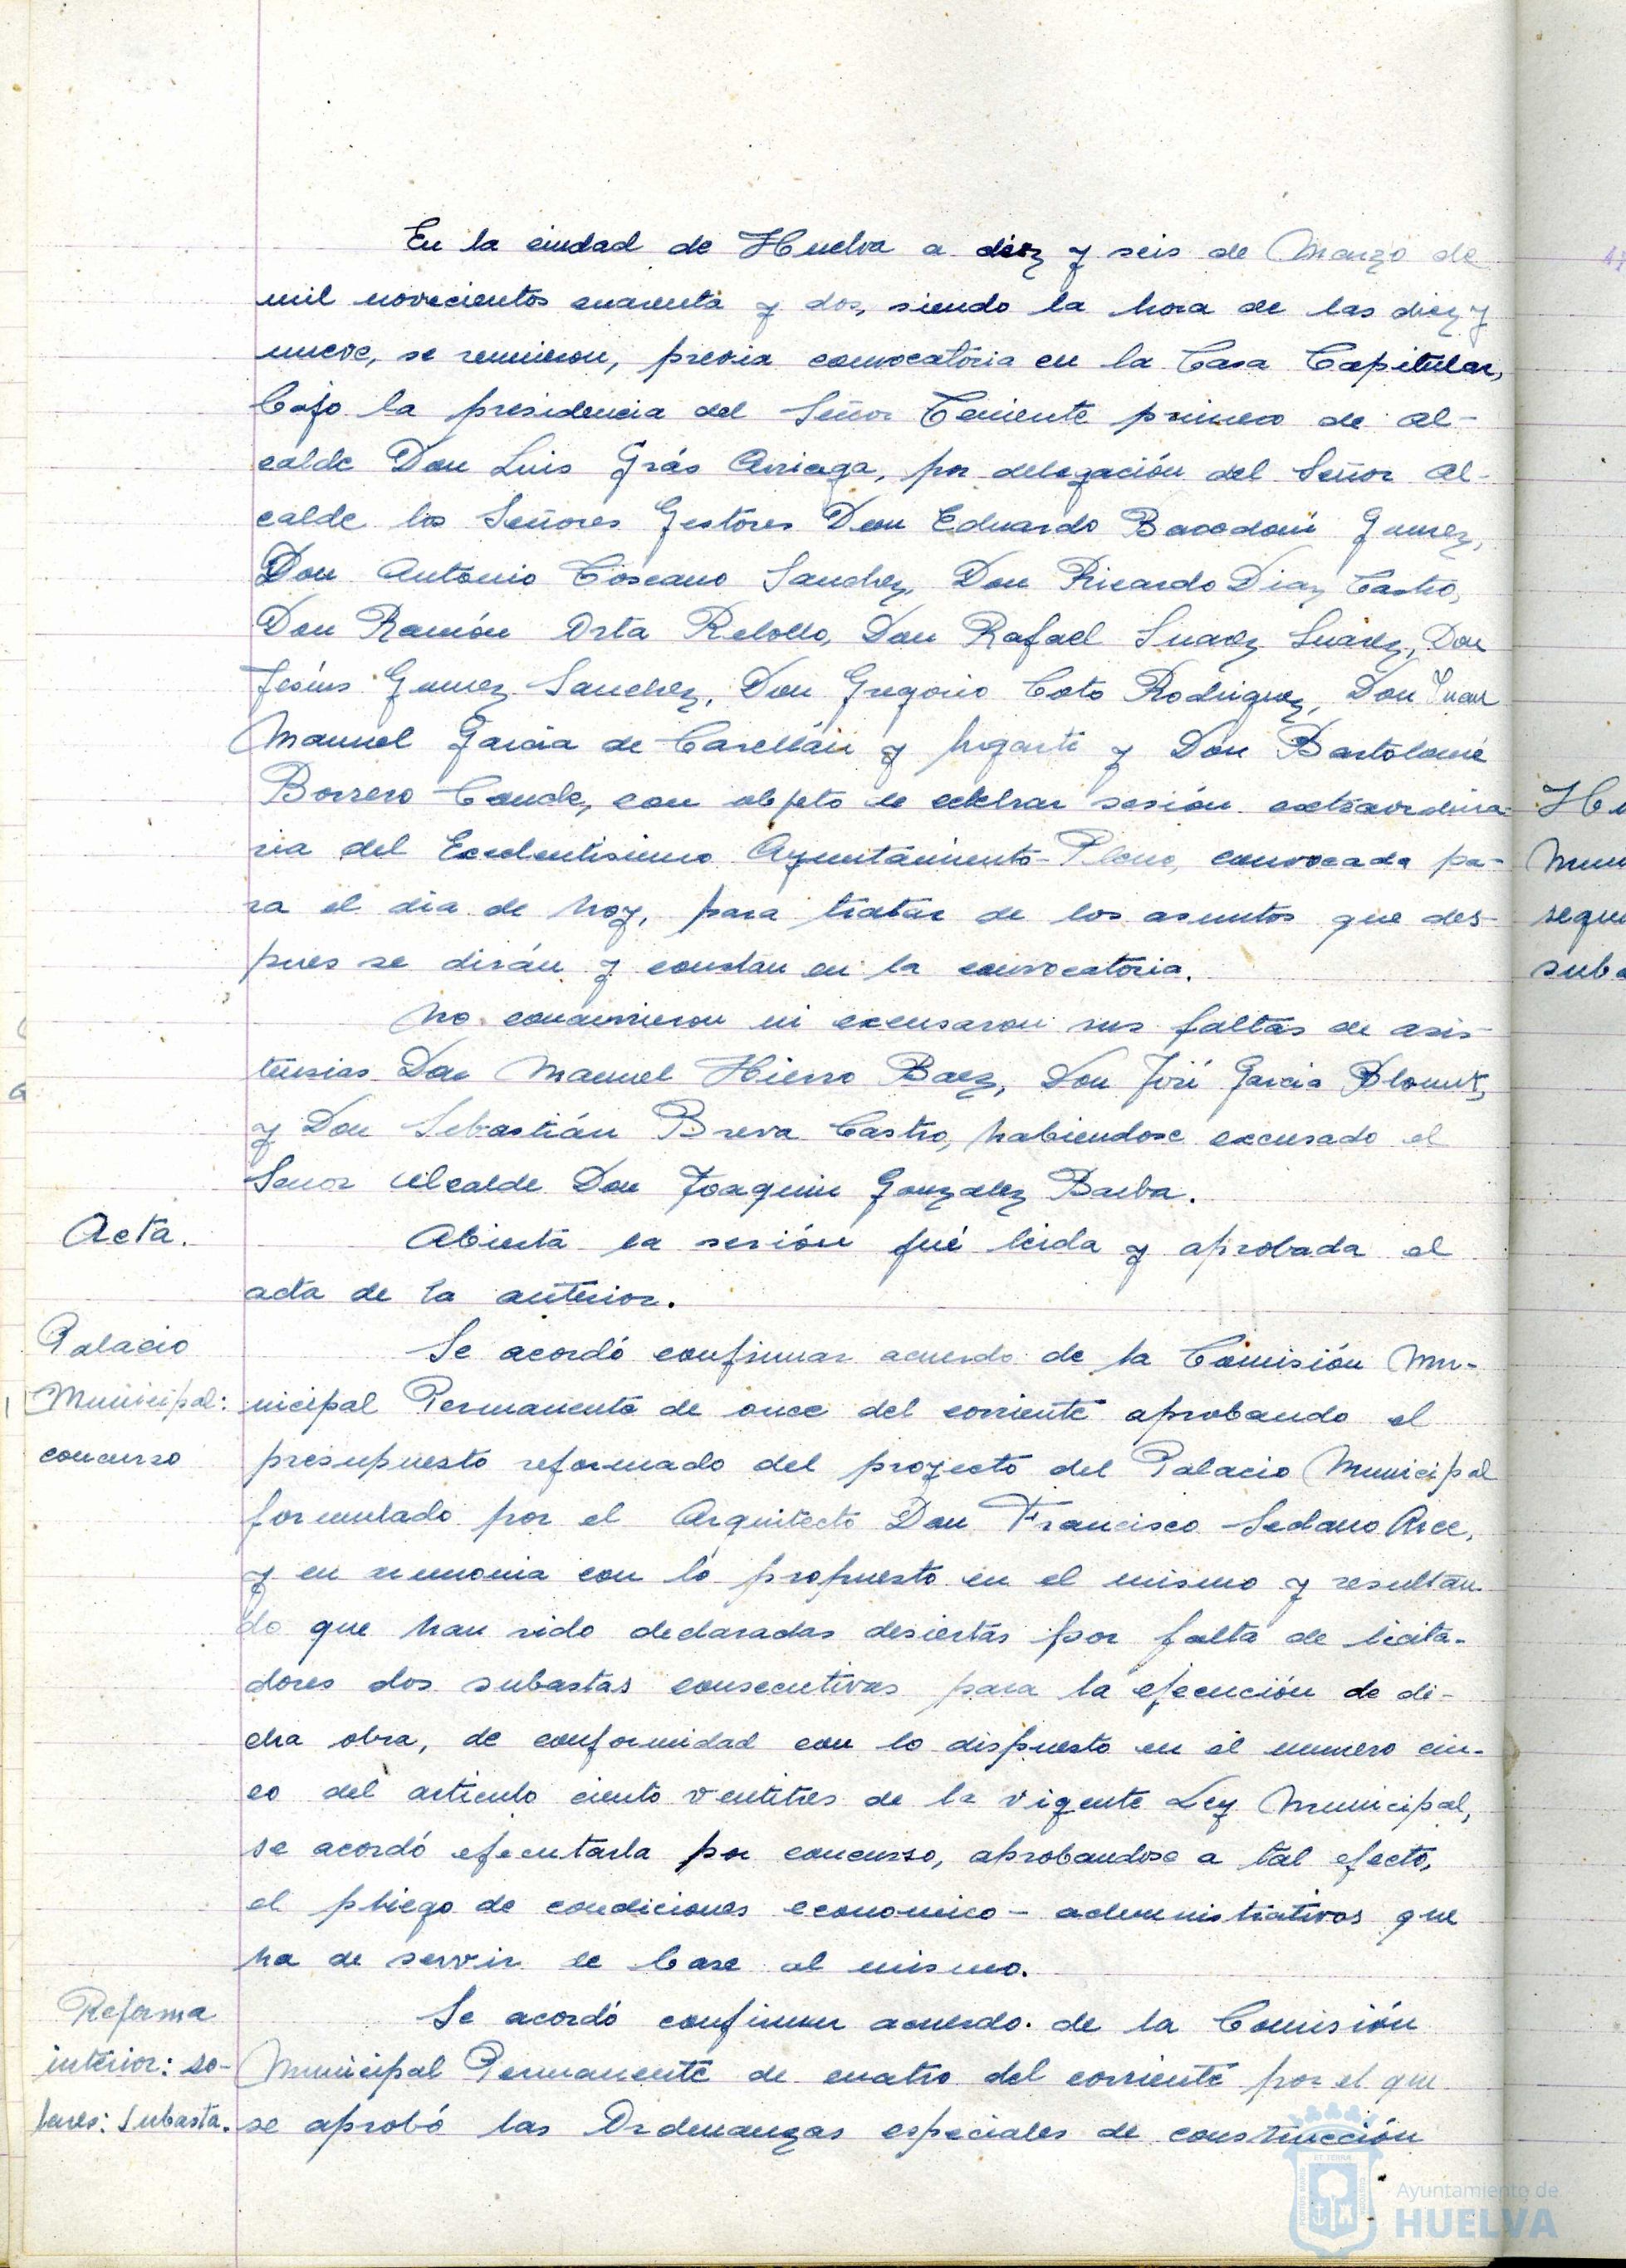 En la ciudad de Huelva a diez y seis de Marzo de
mil novecientos cuarenta y dos, siendo la hora de las diez y
nueve, se reunieron, previa convocatoria en la Casa Capitular,
bajo la presidencia del Señor Teniente primero de Al-
calde Don Luis Grás Arriaga, por delegación del Señor Al-
calde los Señores Gestores Don Eduardo Bacedoni Gumez,
Don Antonio Toscano Sanchez, Don Ricardo Diaz Castro,
Don Ramón Orta Rebollo, Don Rafael Suarez Suarez, Don
Jesús Gomez Sanchez, Don Gregorio Coto Rodriguez, Don Juan
Manuel Garcia de y Don Bartolomé
Borrero Conde, con objeto de celebrar sesión extraordina-
ria del Excelentisimo Ayuntamiento-Pleno, convocada pa-
ra el dia de hoy, para tratar de los asuntos que des-
pues se dirán y constan en la convocatoria.
No concurrieron ni excusaron sus faltas de asis-
tencias Don Manuel Hierro Baez, Don José Garcia
y Don Sebastián Breva Castro, habiendose excusado el
Señor Alcalde Don Joaquin Gonzalez Barba.
Acta.
Abierta la sesión fué leida y aprobada el
acta de la anterior.
Palacio
Municipal:
concurso
Se acordó confirmar acuerdo de la Comisión Mu-
nicipal Permanente de once del corriente aprobando el
presupuesto reformado del proyecto del Palacio Municipal
formulado por el Arquitecto Don Francisco Sedano Arce,
y en armonia con lo propuesto en el mismo y resultan-
do que han sido declaradas desiertas por falta de licita-
dores dos subastas consecutivas para la ejecución de di-
cha obra, de conformidad con lo dispuesto en el numero cin-
co del articulo ciento ventitres de la vigente Ley Municipal,
se acordó ejecutarla por concurso, aprobandose a tal efecto,
el pliego de condiciones economico-administrativas que
ha de servir de base al mismo.
Reforma
interior: so-
lares: Subasta.
Se acordó confirmar acuerdo de la Comisión
Municipal Permanente de cuatro del corriente por el que
se aprobó las Ordenanzas especiales de construcción
Ayuntamiento de
HUELVA